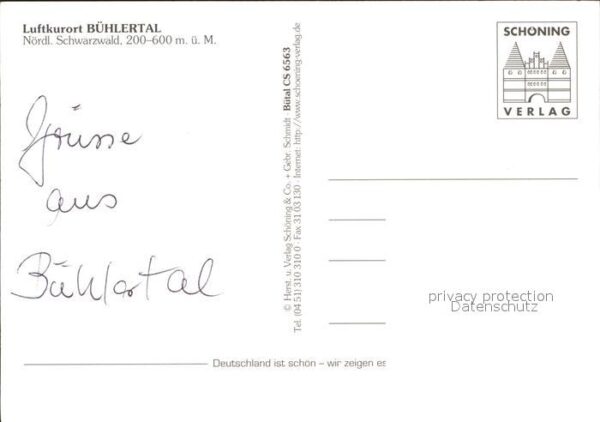 Luftkurort BÜHLERTAL
Nördl. Schwarzwald, 200–600 m. ü. M.
Grüsse
aus
Bühlertal
© Herst. u. Verlag Schöning & Co. + Gebr. Schmidt · Bütal CS 6563
Tel. (04 51) 310 310 0 · Fax 31 03 130 · Internet: http://www.schoening-verlag.de
SCHÖNING
VERLAG
privacy protection
Datenschutz
Deutschland ist schön – wir zeigen es